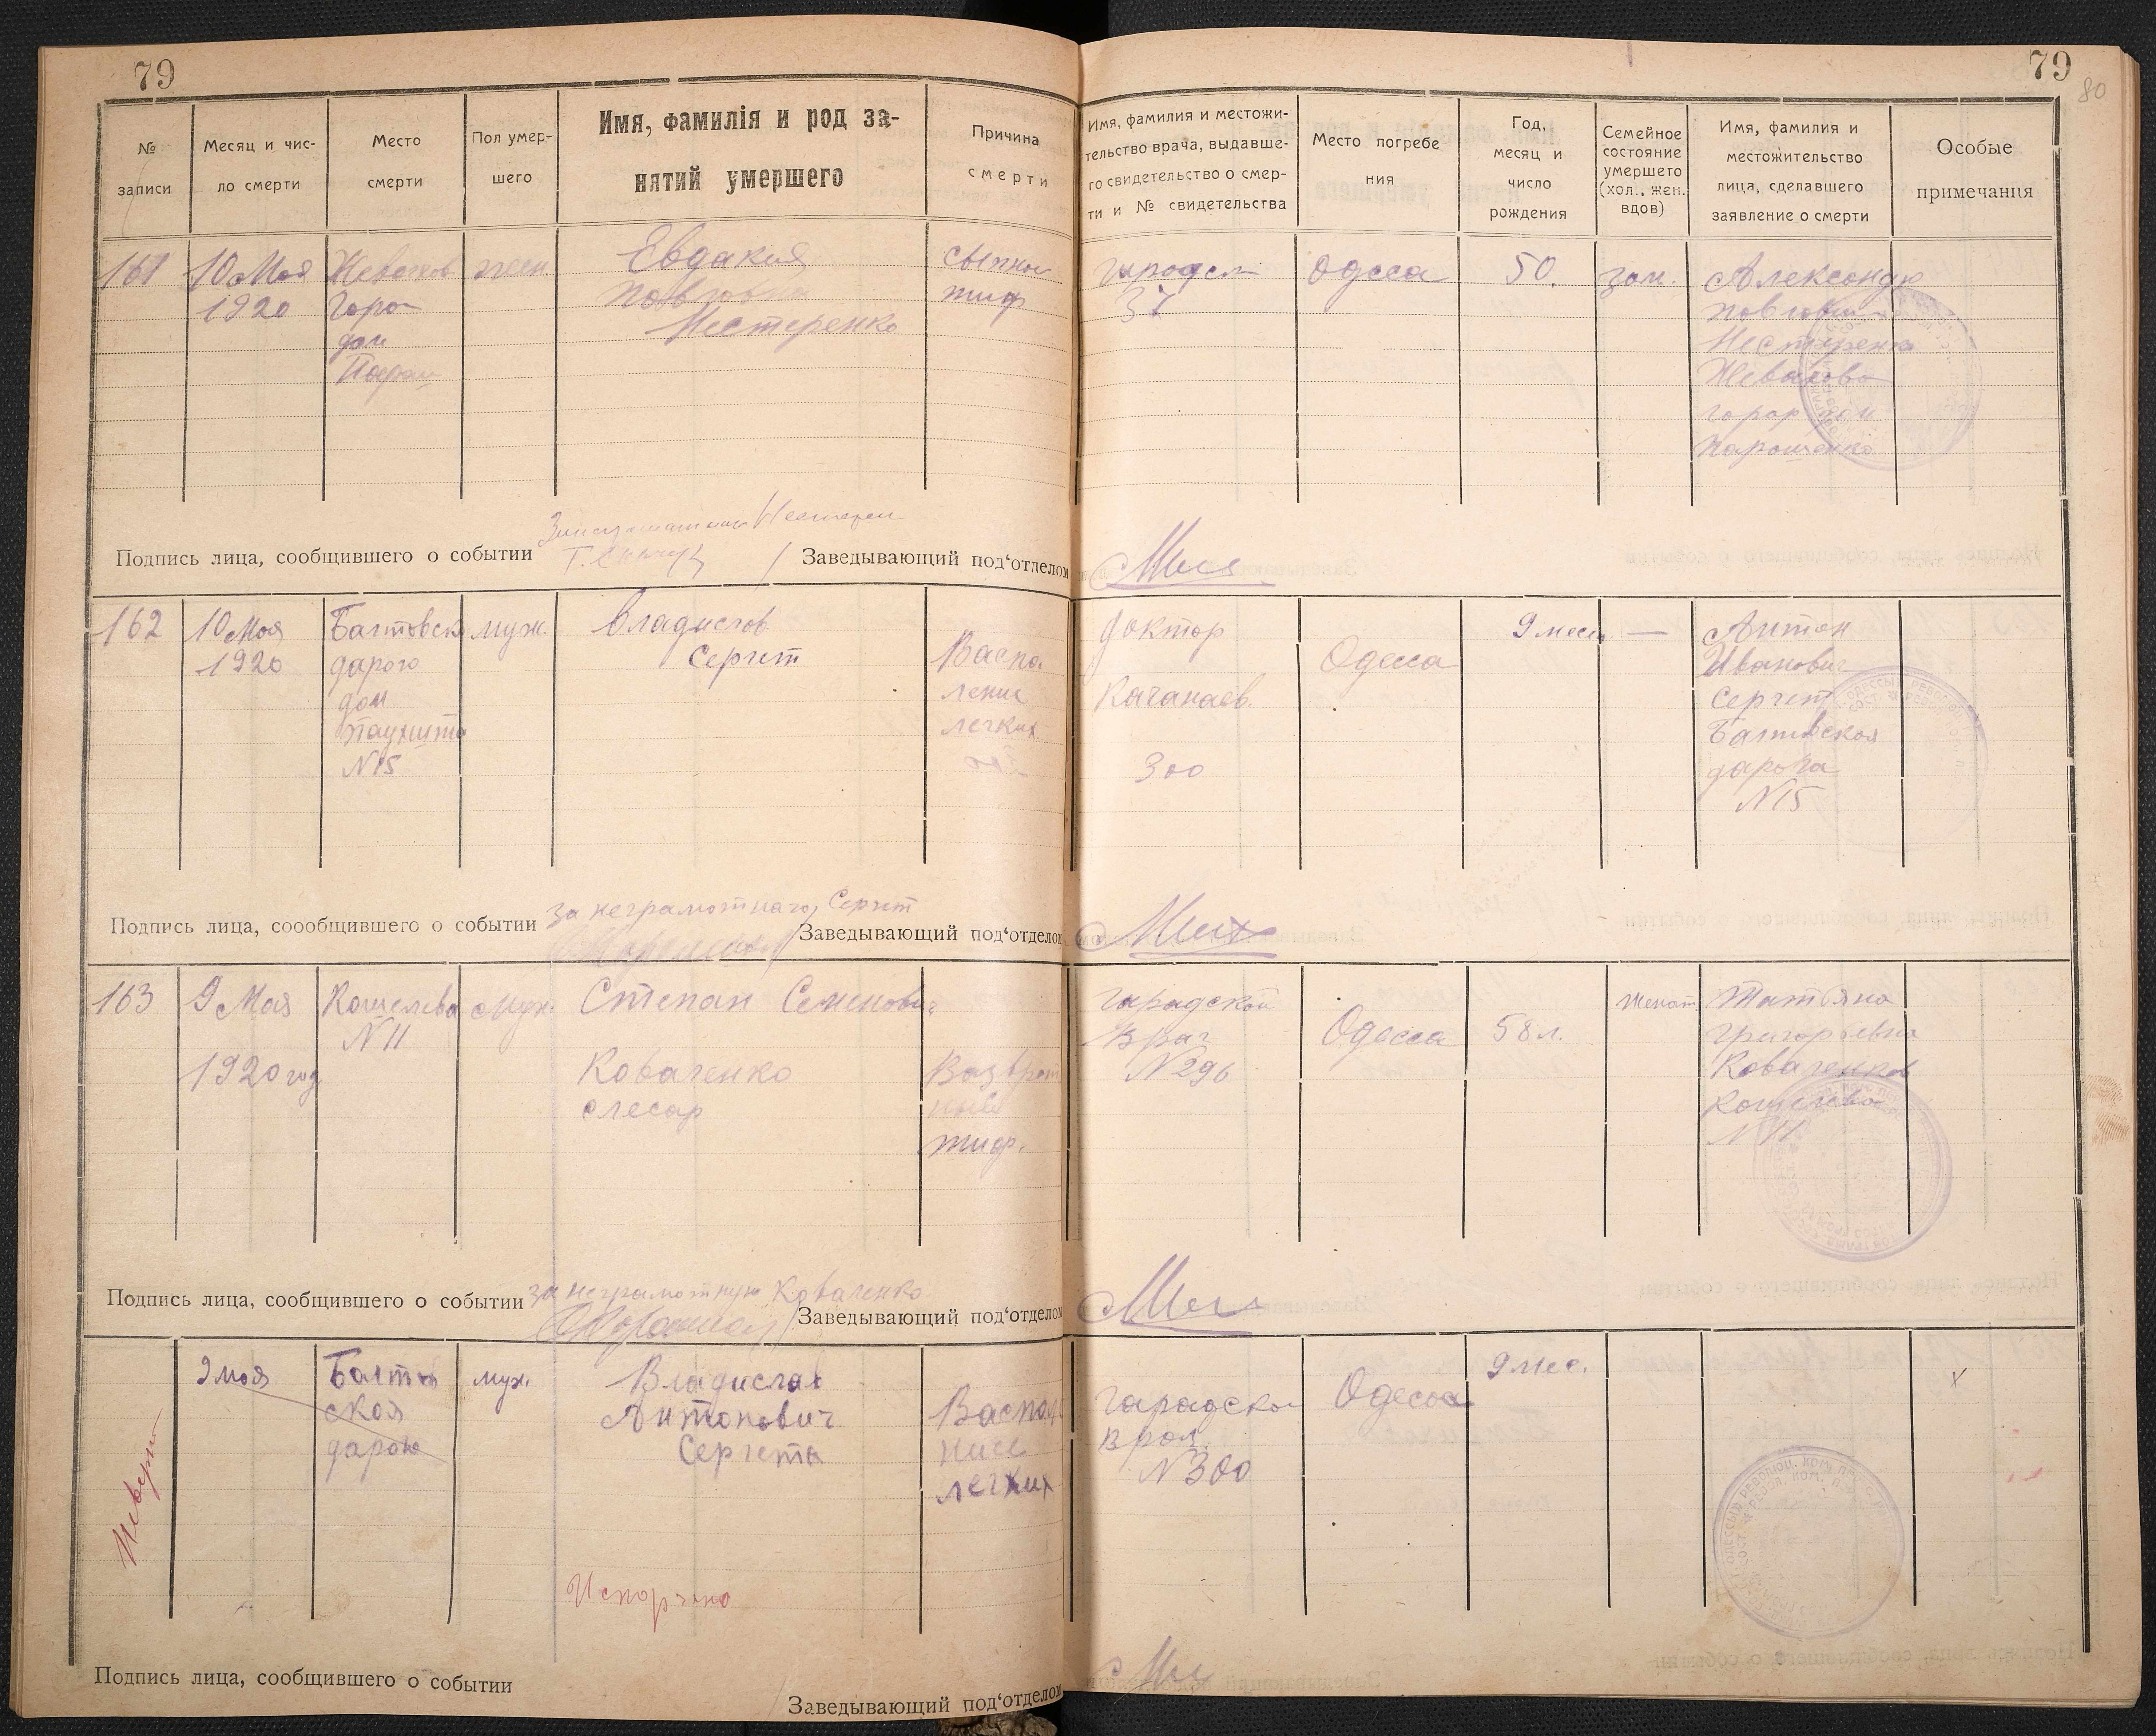 79
79
80
№ записи
Месяц и чис-
ло смерти
Место
смерти
Пол умер-
шего
Имя, фамилія и род за-
нятий умершего
Причина
смерти
Имя, фамилия и местожи-
тельство врача, выдавше-
го свидетельство о смер-
ти и № свидетельства
Место погребе
ния
Год,
месяц и
число
рождения
Семейное
состояние
умершего
(хол., жен.
вдов)
Имя, фамилия и
местожительство
лица, сделавшего
заявление о смерти
Особые
примечания
161
10 Мая
1920
дом
жен.
Евдакия
Нестеренко
сыпной
тиф
37
Одесса
50.
зам.
Александр
Нестеренко
Подпись лица, сообщившего о событии
Заведывающий под‘отделом
162
10 Мая
1920
Балтовск
дарога
дом
N 15
муж.
Владислав
Сергет
Васпа
ление
легких
доктор
Качанаев.
300
Одесса
9 меся.
—
Антон
Иванович
Сергет
Балтовская
дарога
N 15
за неграмотнаго Сергет
Подпись лица, соообщившего о событии
Заведывающий под‘отделом
163
9 Мая
1920 год
Кошелева
N 11
муж.
Степан Семенович
Коваленко
слесар
Вазврат
ный
тиф.
гарадской
Врач
N 296
Одесса
58 л.
женат.
Татьяна
Григорьевна
Коваленко
Кошелева
N 11
за неграмотную Коваленко
Подпись лица, сообщившего о событии
Заведывающий под‘отделом
9 мая
Балтов
ская
дарога
муж.
Владислав
Антонович
Сергета
легких
гарадской
врач
N 300
Одесса
9 мес.
х
Испорчено
Подпись лица, сообщившего о событии
Заведывающий под‘отделом